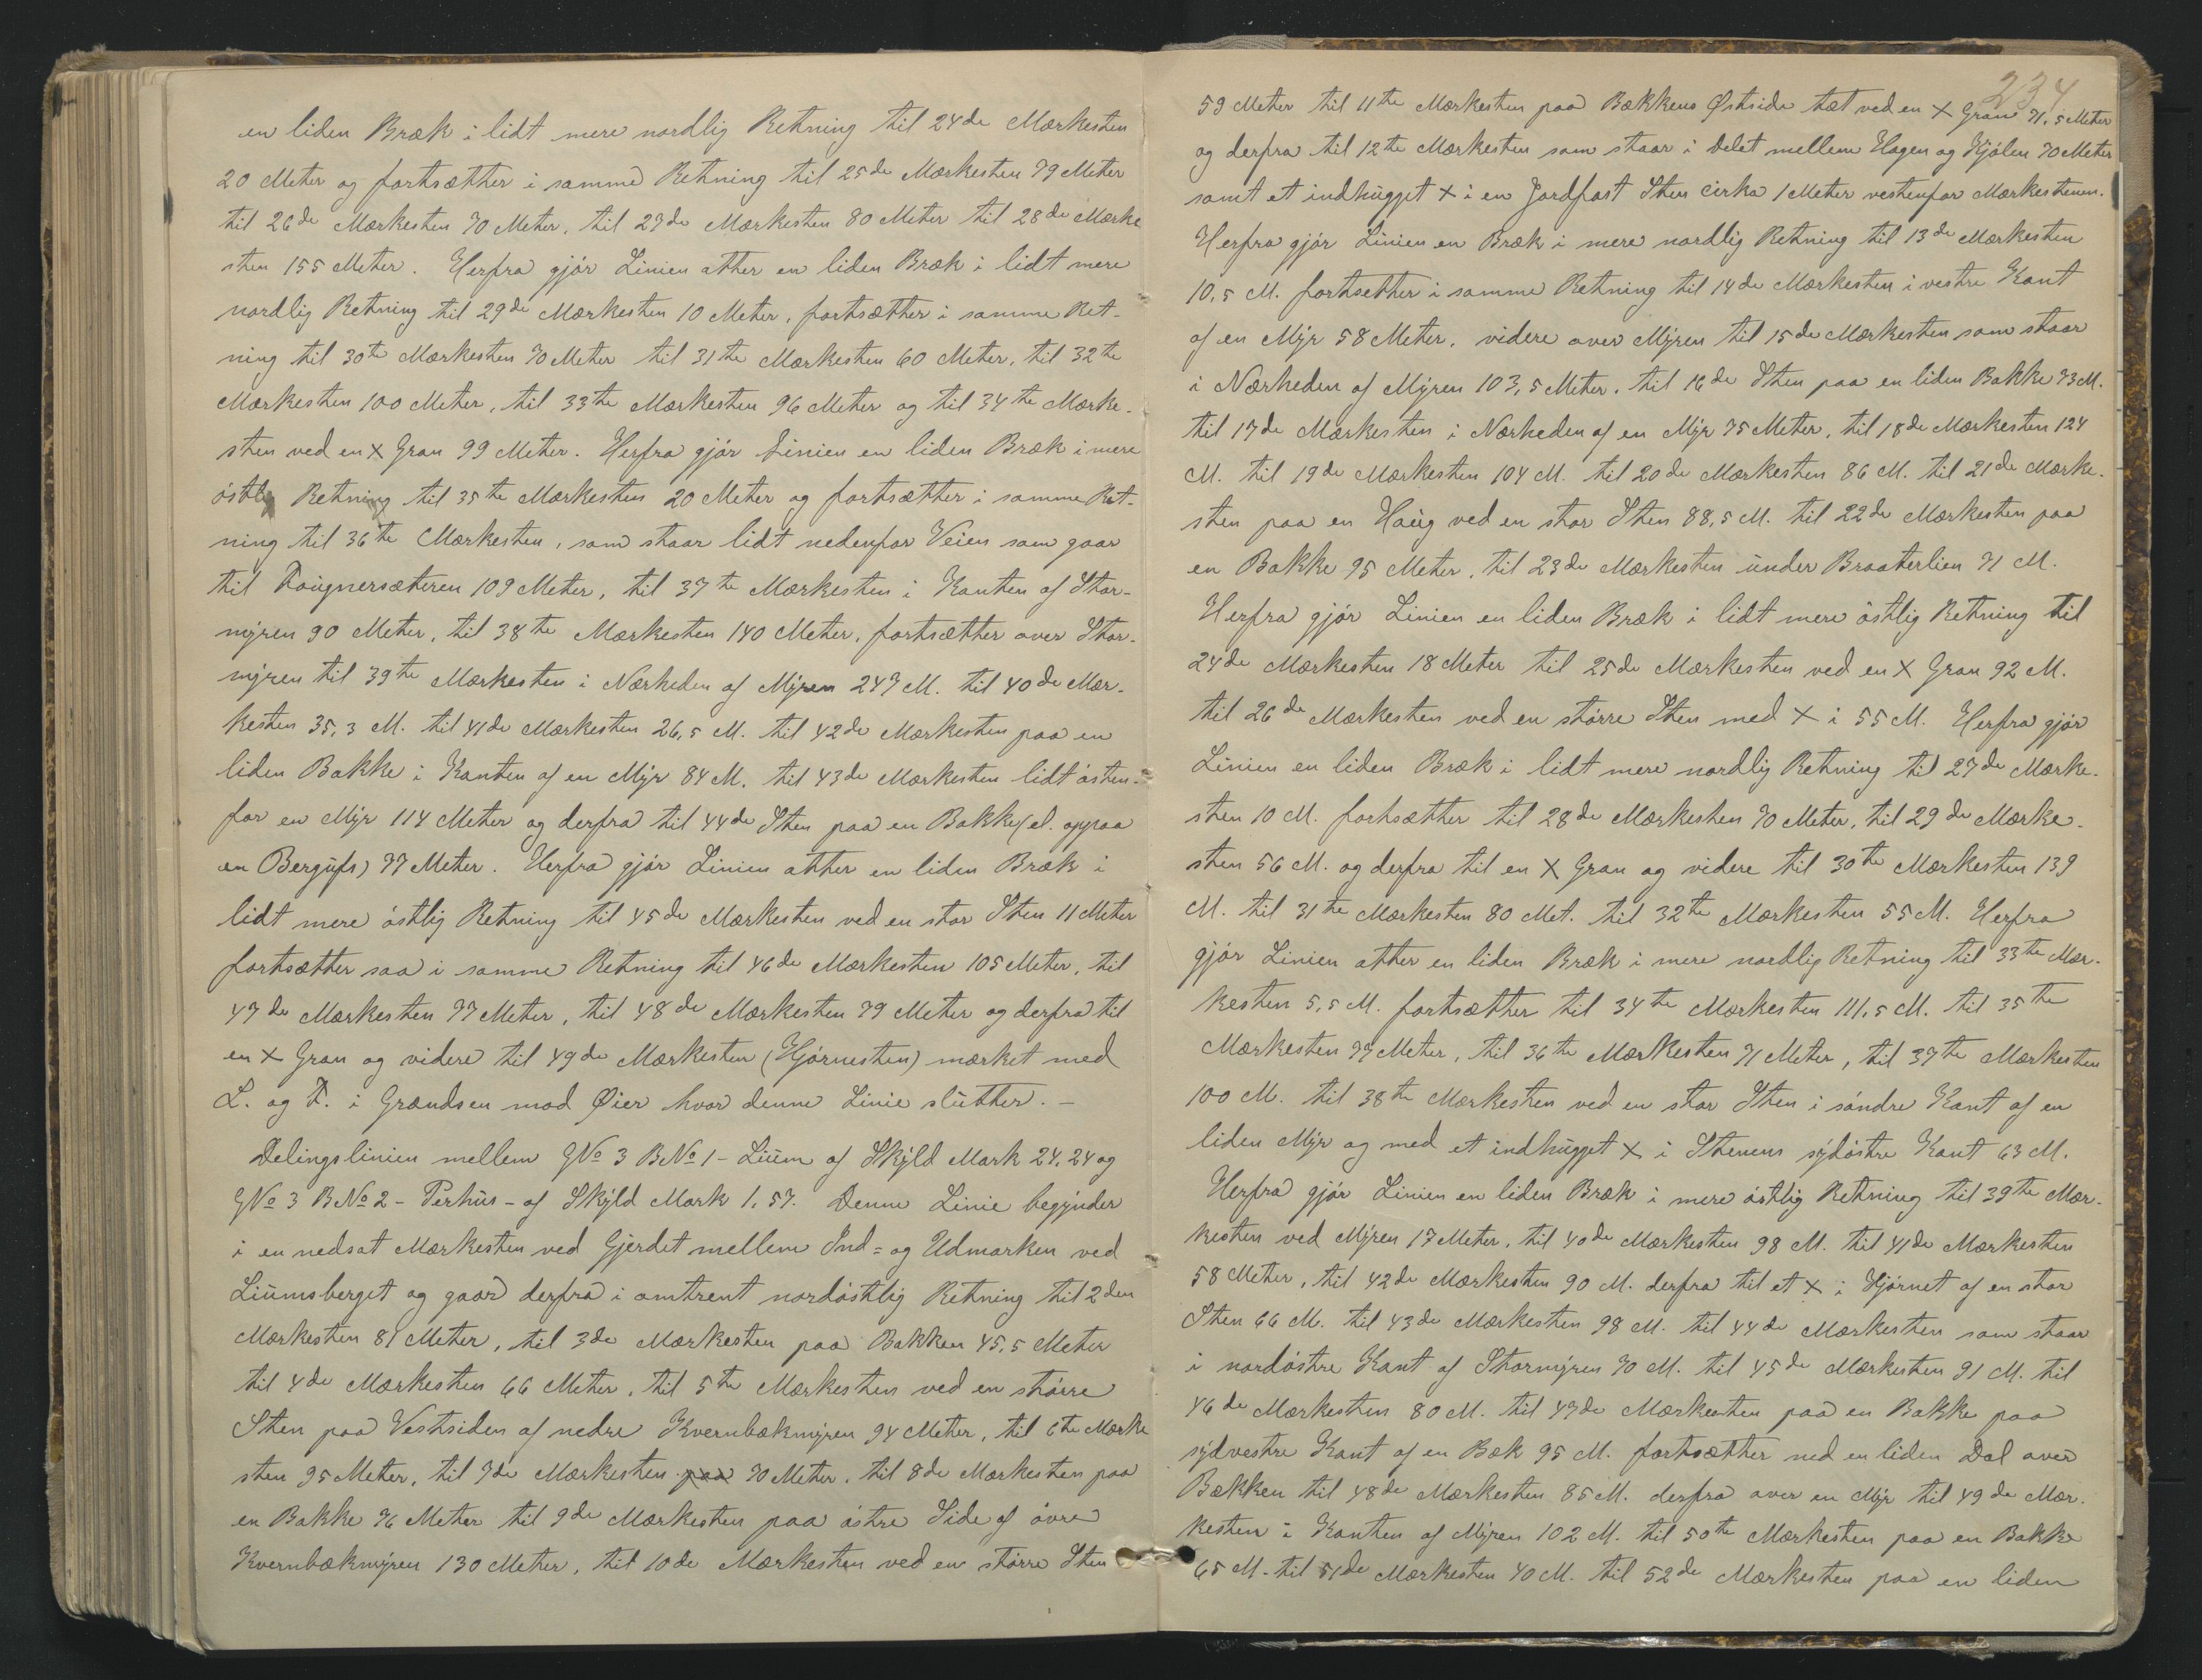 en liden Bræk i lidt mere nordlig Retning til 24de Mærkesten
20 Meter og fortsætter i samme Retning til 25de Mærkesten 79 Meter
til 26de Mærkesten 70 Meter, til 27de Mærkesten 80 Meter til 28de Mærke
sten 155 Meter. Herfra gjør Linien atter en liden Bræk i lidt mere
nordlig Retning til 29de Mærkesten 10 Meter, fortsætter i samme Ret-
ning til 30te Mærkesten 70 Meter til 31te Mærkesten 60 Meter, til 32te
Mærkesten 100 Meter, til 33te Mærkesten 96 Meter og til 34te Mærke-
sten ved en X Gran 99 Meter. Herfra gjør Linien en liden Bræk i mere
østlig Retning til 35te Mærkesten 20 Meter og fortsætter i samme Ret-
ning til 36te Mærkesten, som staar lidt nedenfor Veien som gaar
til Fougnersæteren 109 Meter, til 37te Mærkesten i Kanten af Stor-
myren 90 Meter, til 38te Mærkesten 140 Meter, fortsætter over Stor-
myren til 39te Mærkesten i Nærheden af Myren 247 M. til 40de Mær-
kesten 35,3 M. til 41de Mærkesten 26,5 M. til 42de Mærkesten paa en
liden Bakke i Kanten af en Myr 84 M. til 43de Mærkesten lidt østen-
for en Myr 114 Meter og derfra til 44de Sten paa en Bakke (el. oppaa
en Bergufs) 77 Meter. Herfra gjør Linien atter en liden Bræk i
lidt mere østlig Retning til 45de Mærkesten ved en stor Sten 11 Meter
fortsætter saa i samme Retning til 46de Mærkesten 105 Meter, til
47de Mærkesten 77 Meter, til 48de Mærkesten 79 Meter og derfra til
en X Gran og videre til 49de Mærkesten (Hjørnesten) mærket med
L. og F. i Grændsen mod Øier hvor denne Linie slutter. -
Delingslinien mellem GNo 3 BNo 1 - Liüm af Skyld Mark 24,24 og
GNo 3 BNo 2 - Perhus - af Skyld Mark 1,57. Denne Linie begynder
i en nedsat Mærkesten ved Gjerdet mellem Ind= og Udmarken ved
Liümsberget og gaar derfra i omtrent nordøstlig Retning til 2den
Mærkesten 81 Meter, til 3de Mærkesten paa Bakken 45,5 Meter
til 4de Mærkesten 66 Meter, til 5te Mærkesten ved en større
Sten paa Vestsiden af nedre Kvernbækmyren 94 Meter, til 6te Mærke
sten 95 Meter, til 7de Mærkesten paa 70 Meter, til 8de Mærkesten paa
en Bakke 76 Meter til 9de Mærkesten paa østre Side af øvre
Kvernbækmyren 130 Meter, til 10de Mærkesten ved en større Sten
234
59 Meter til 11te Mærkesten paa Bækkens Østside tæt ved en X Gran 71,5 Meter
og derfra til 12te Mærkesten som staar i Delet mellem Hagen og Kjølen 70 Meter
samt et indhugget X i en Jordfast Sten cirka 1 Meter vestenfor Mærkestenen.
Herfra gjør Linien en Bræk i mere nordlig Retning til 13de Mærkesten
10,5 M. fortsetter i samme Retning til 14de Mærkesten i vestre Kant
af en Myr 58 Meter, videre over Myren til 15de Mærkesten som staar
i Nærheden af Myren 103,5 Meter, til 16de Sten paa en liden Bakke 73 M.
til 17de Mærkesten i Nærheden af en Myr 75 Meter, til 18de Mærkesten 124
M. til 19de Mærkesten 104 M. til 20de Mærkesten 86 M. til 21de Mærke-
sten paa en Haug ved en stor Sten 88,5 M. til 22de Mærkesten paa
en Bakke 95 Meter, til 23de Mærkesten under Braaterlien 71 M.
Herfra gjør Linien en liden Bræk i lidt mere østlig Retning til
24de Mærkesten 18 Meter til 25de Mærkesten ved en X Gran 92 M.
til 26de Mærkesten ved en større Sten med X i 55 M. Herfra gjør
Linien en liden Bræk i lidt mere nordlig Retning til 27de Mærke-
sten 10 M. fortsætter til 28de Mærkesten 70 Meter, til 29de Mærke-
sten 56 M. og derfra til en X Gran og videre til 30te Mærkesten 139
M. til 31te Mærkesten 80 Met. til 32te Mærkesten 55 M. Herfra
gjør Linien atter en liden Bræk i mere nordlig Retning til 33te Mær-
kesten 5,5 M. fortsætter til 34te Mærkesten 111,5 M. til 35te
Mærkesten 77 Meter, til 36te Mærkesten 71 Meter, til 37te Mærkesten
100 M. til 38te Mærkesten ved en stor Sten i søndre Kant af en
liden Myr og med et indhugget X i Stenens sydøstre Kant 63 M.
Herfra gjør Linien en liden Bræk i mere østlig Retning til 39te Mær-
kesten ved Myren 17 Meter, til 40de Mærkesten 98 M. til 41de Mærkesten
58 Meter, til 42de Mærkesten 90 M. derfra til et X i Hjørnet af en stor
Sten 66 M. til 43de Mærkesten 98 M. til 44de Mærkesten som staar
i nordøstre Kant af Stormyren 70 M. til 45de Mærkesten 91 M. til
46de Mærkesten 80 M. til 47de Mærkesten paa en Bakke paa
sydvestre Kant af en Bæk 95 M. fortsætter ned en liden Dal over
Bækken til 48de Mærkesten 85 M. derfra over en Myr til 49de Mær-
kesten i Kanten af Myren 102 M. til 50te Mærkesten paa en Bakke
65 M. til 51de Mærkesten 40 M. til 52de Mærkesten paa en liden